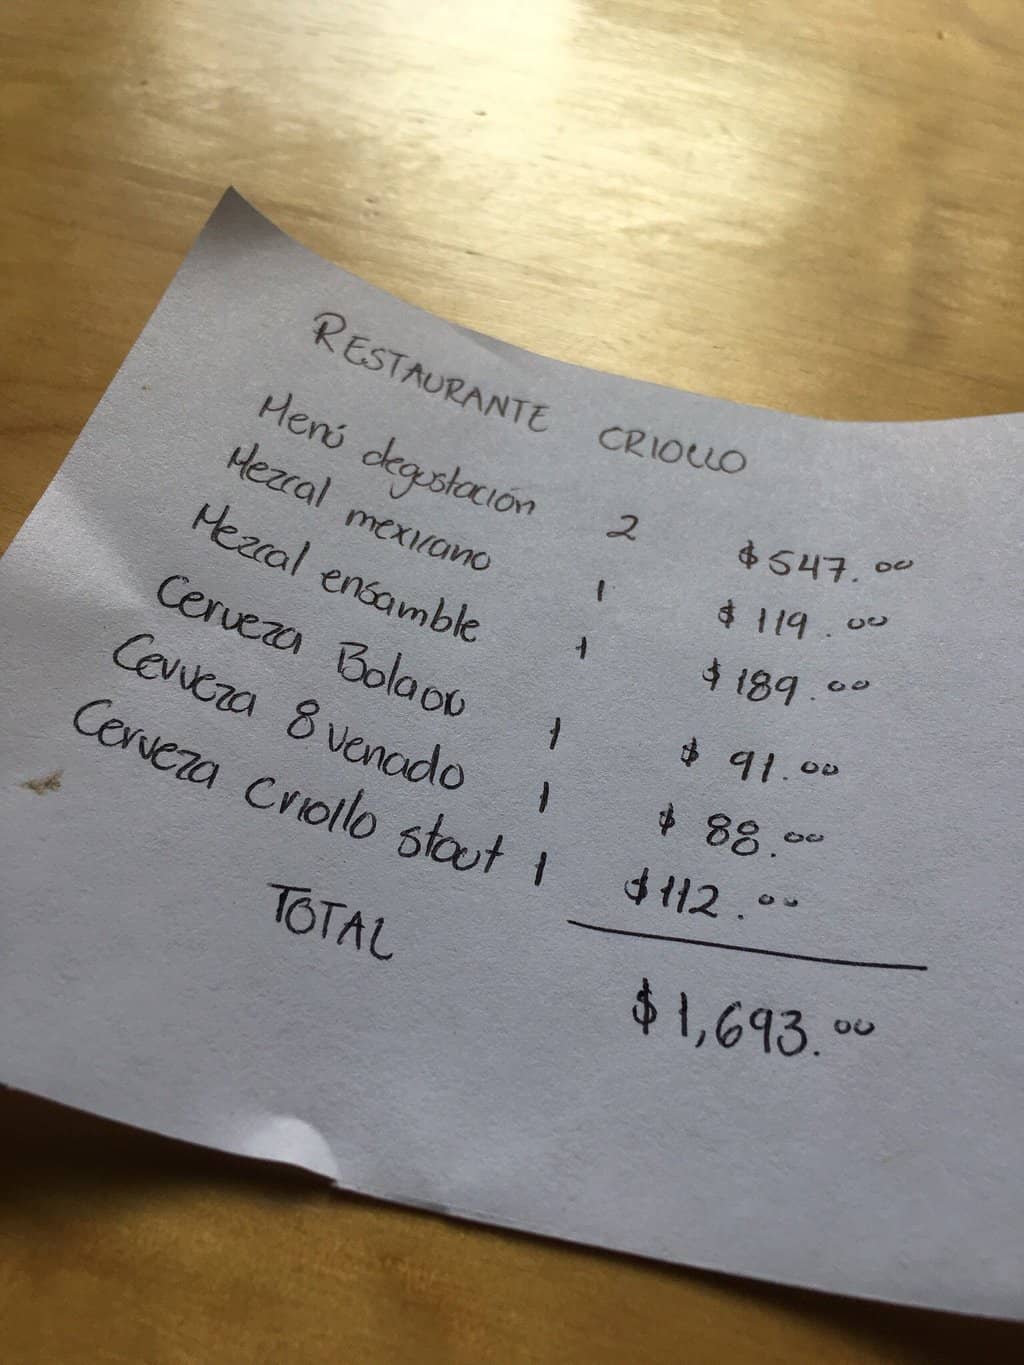 RESTAURANTE CRIOLLO
Menú degustación 2 $547.00
Mezcal mexicano 1 $119.00
Mezcal ensamble 1 $189.00
Cerveza 1 $91.00
Cerveza 8 venado 1 $88.00
Cerveza Criollo stout 1 $112.00
TOTAL $1,693.00